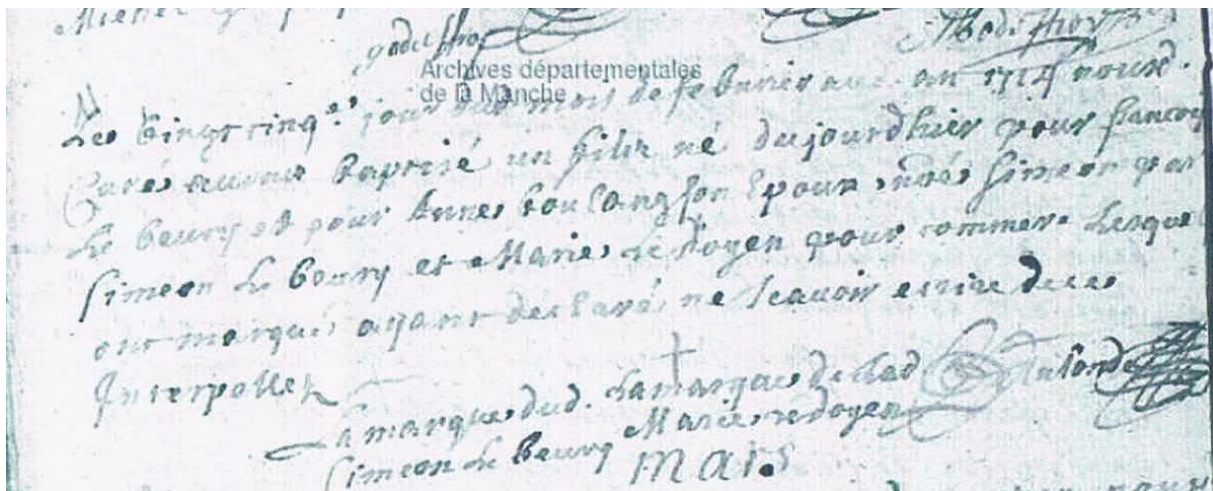 Michel
godeffroy
Archives départementales
de la Manche
Les Vingt cinq.e jour du mois de febvrier aud. an 1714 nousd.
Curé avons baptisé un filz né dujourdhier pour francoys
Le beury et pour Anne son Epouse nomé Simeon par
Simeon Le beury et Marie Le doyen pour commere Lesque
ont marqué ayant declaré ne scavoir escrire de ce
Interpellez
La marque dud. La marque de Lad
Simeon Le beury Marie Le doyen
Mars